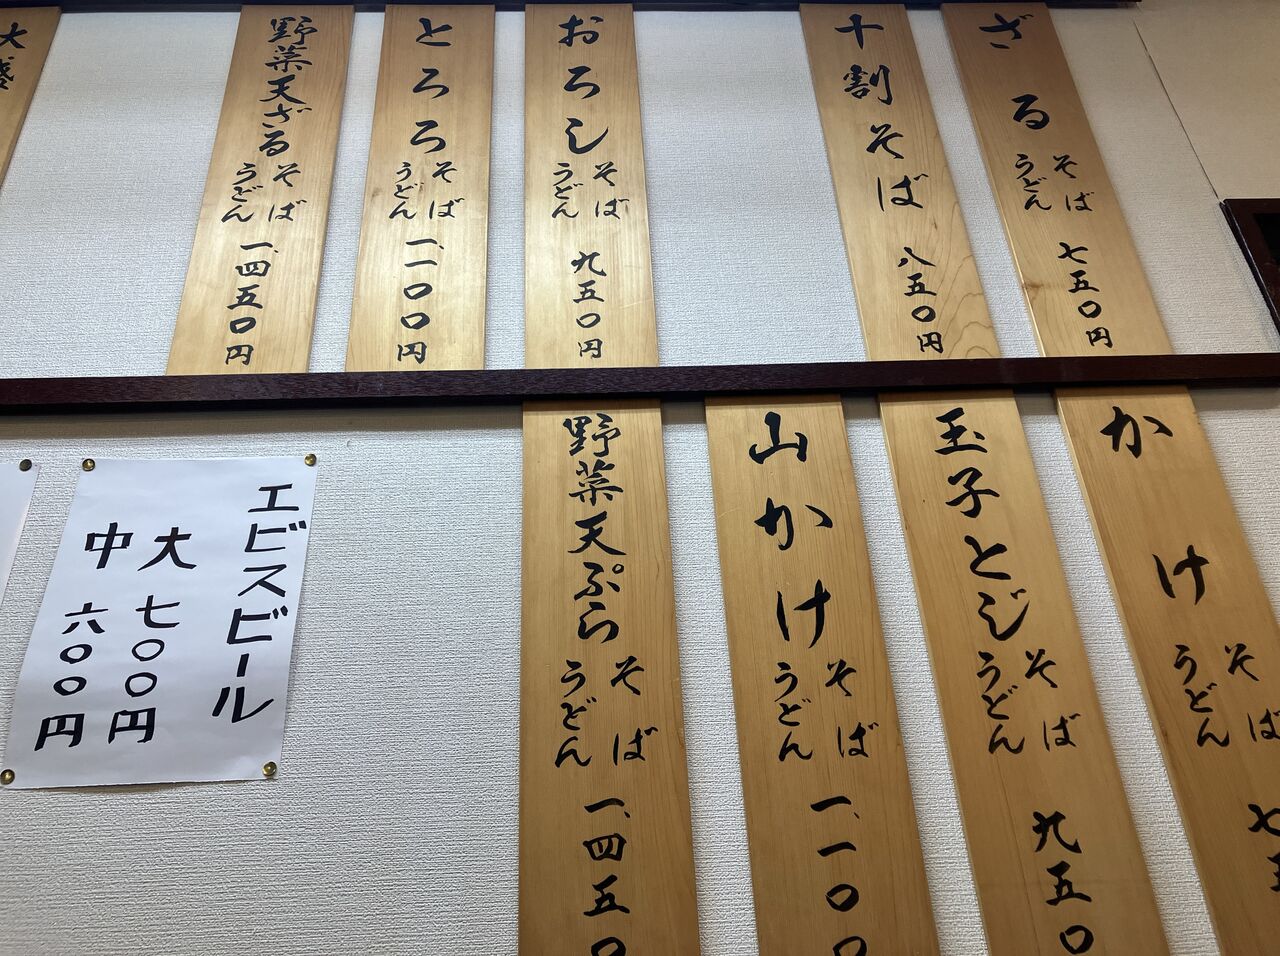 ざる
そば
うどん
七五〇円
十割そば
八五〇円
おろし
そば
うどん
九五〇円
とろろ
そば
うどん
一、一〇〇円
野菜天ざる
そば
うどん
一、四五〇円
大盛
かけ
そば
うどん
七五
玉子とじ
そば
うどん
九五〇
山かけ
そば
うどん
一、一〇〇
野菜天ぷら
そば
うどん
一、四五〇
エビスビール
大 七〇〇円
中 六〇〇円